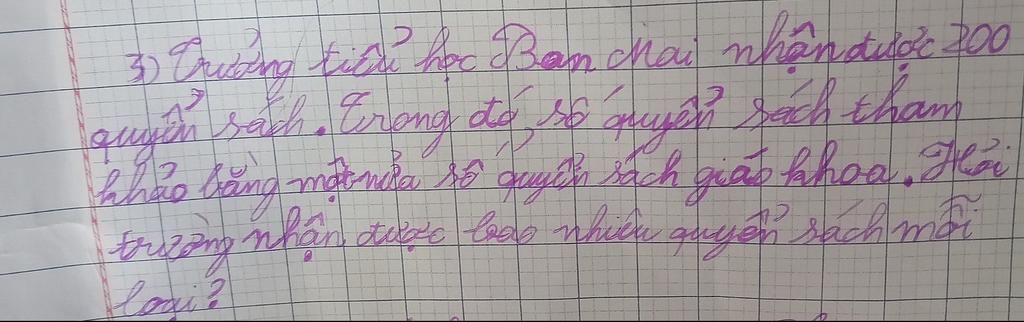 3) Trường tiểu học Ban Mai nhận được 300
quyển sách. Trong đó, số quyển sách tham
khảo bằng một nửa số quyển sách giáo khoa. Hỏi
trường nhận được bao nhiêu quyển sách mỗi
loại?